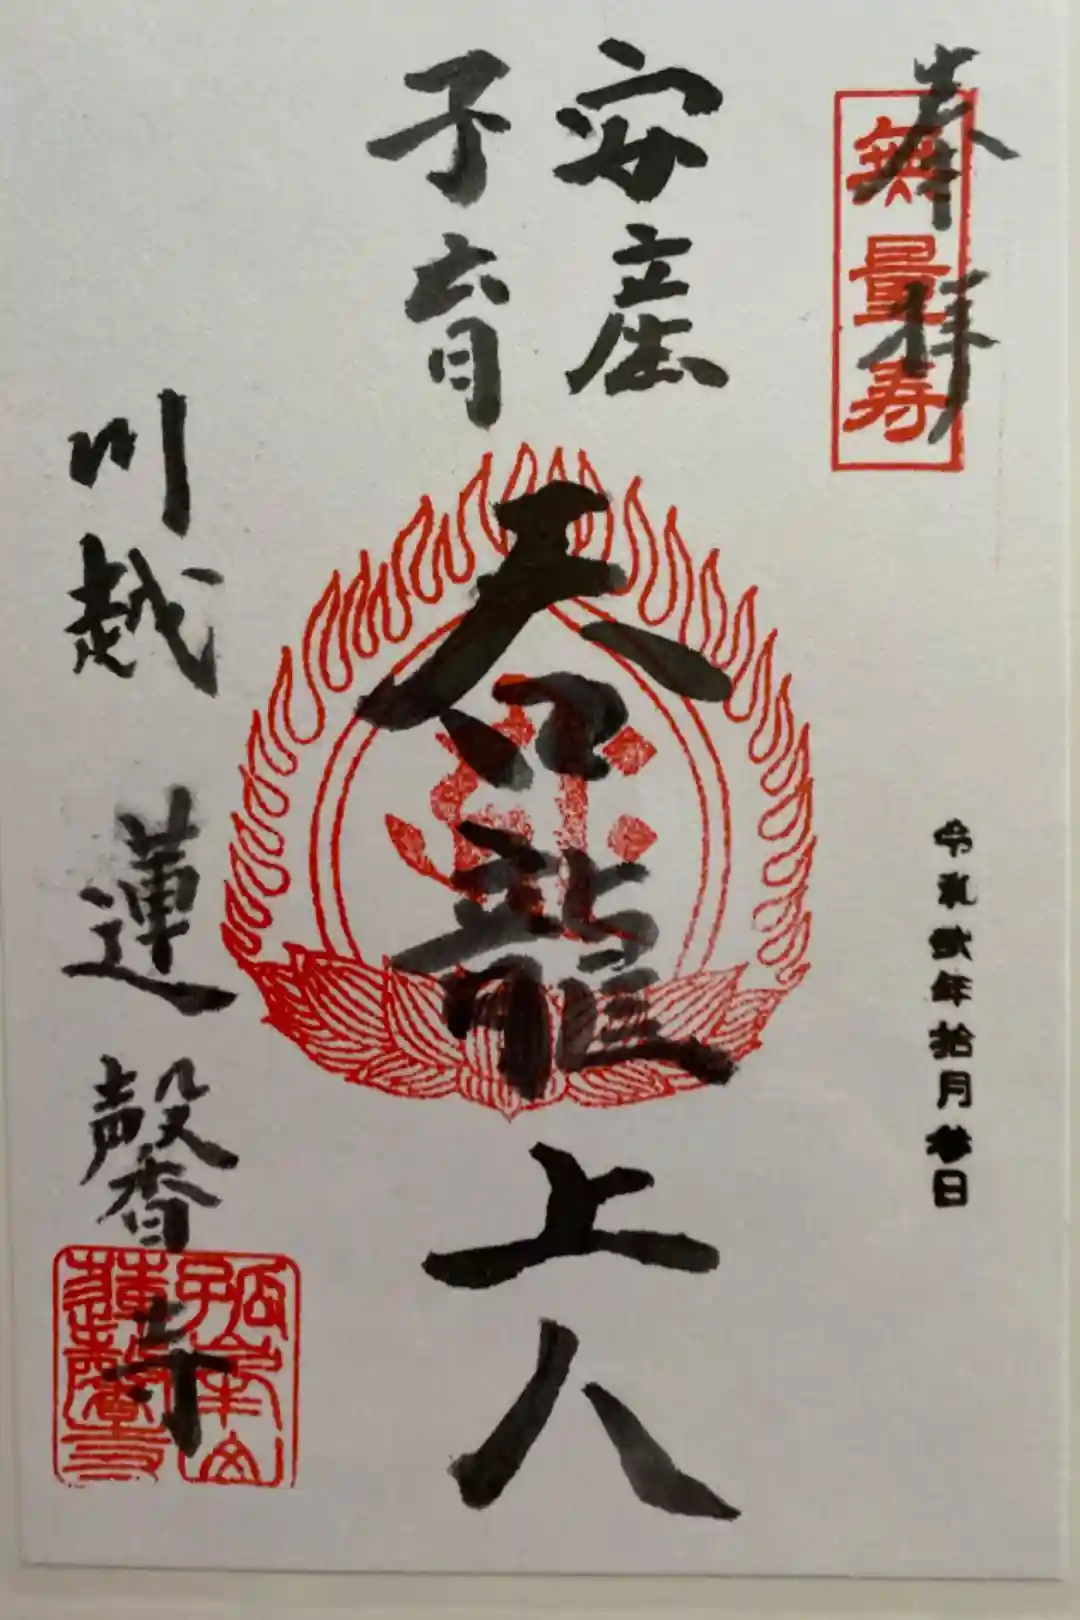 奉拝
無量寿
令和弐年拾月参日
安産
子育
呑龍上人
川越 蓮馨寺
孤峯山
蓮馨寺